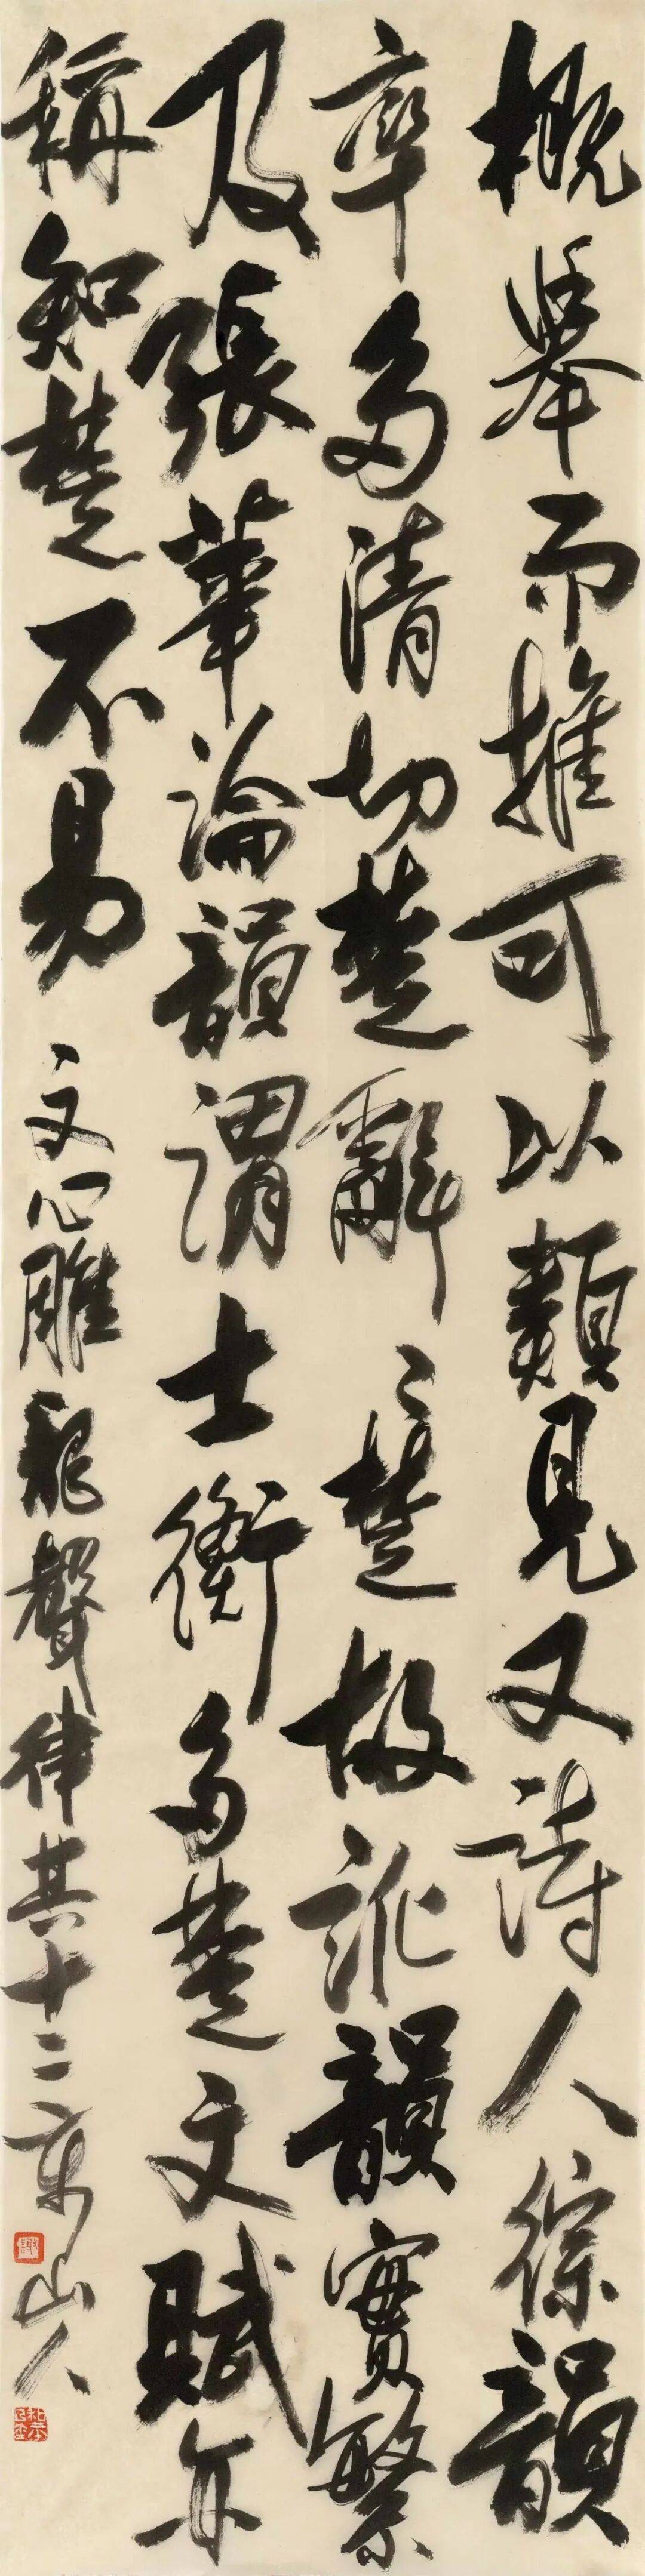 概舉而推可以類見又詩人綜韻
率多清切楚辭辭楚故訛韻實繁
及張華論韻謂士衡多楚文賦亦
稱知楚不易 文心雕龍聲律其十二 京山人